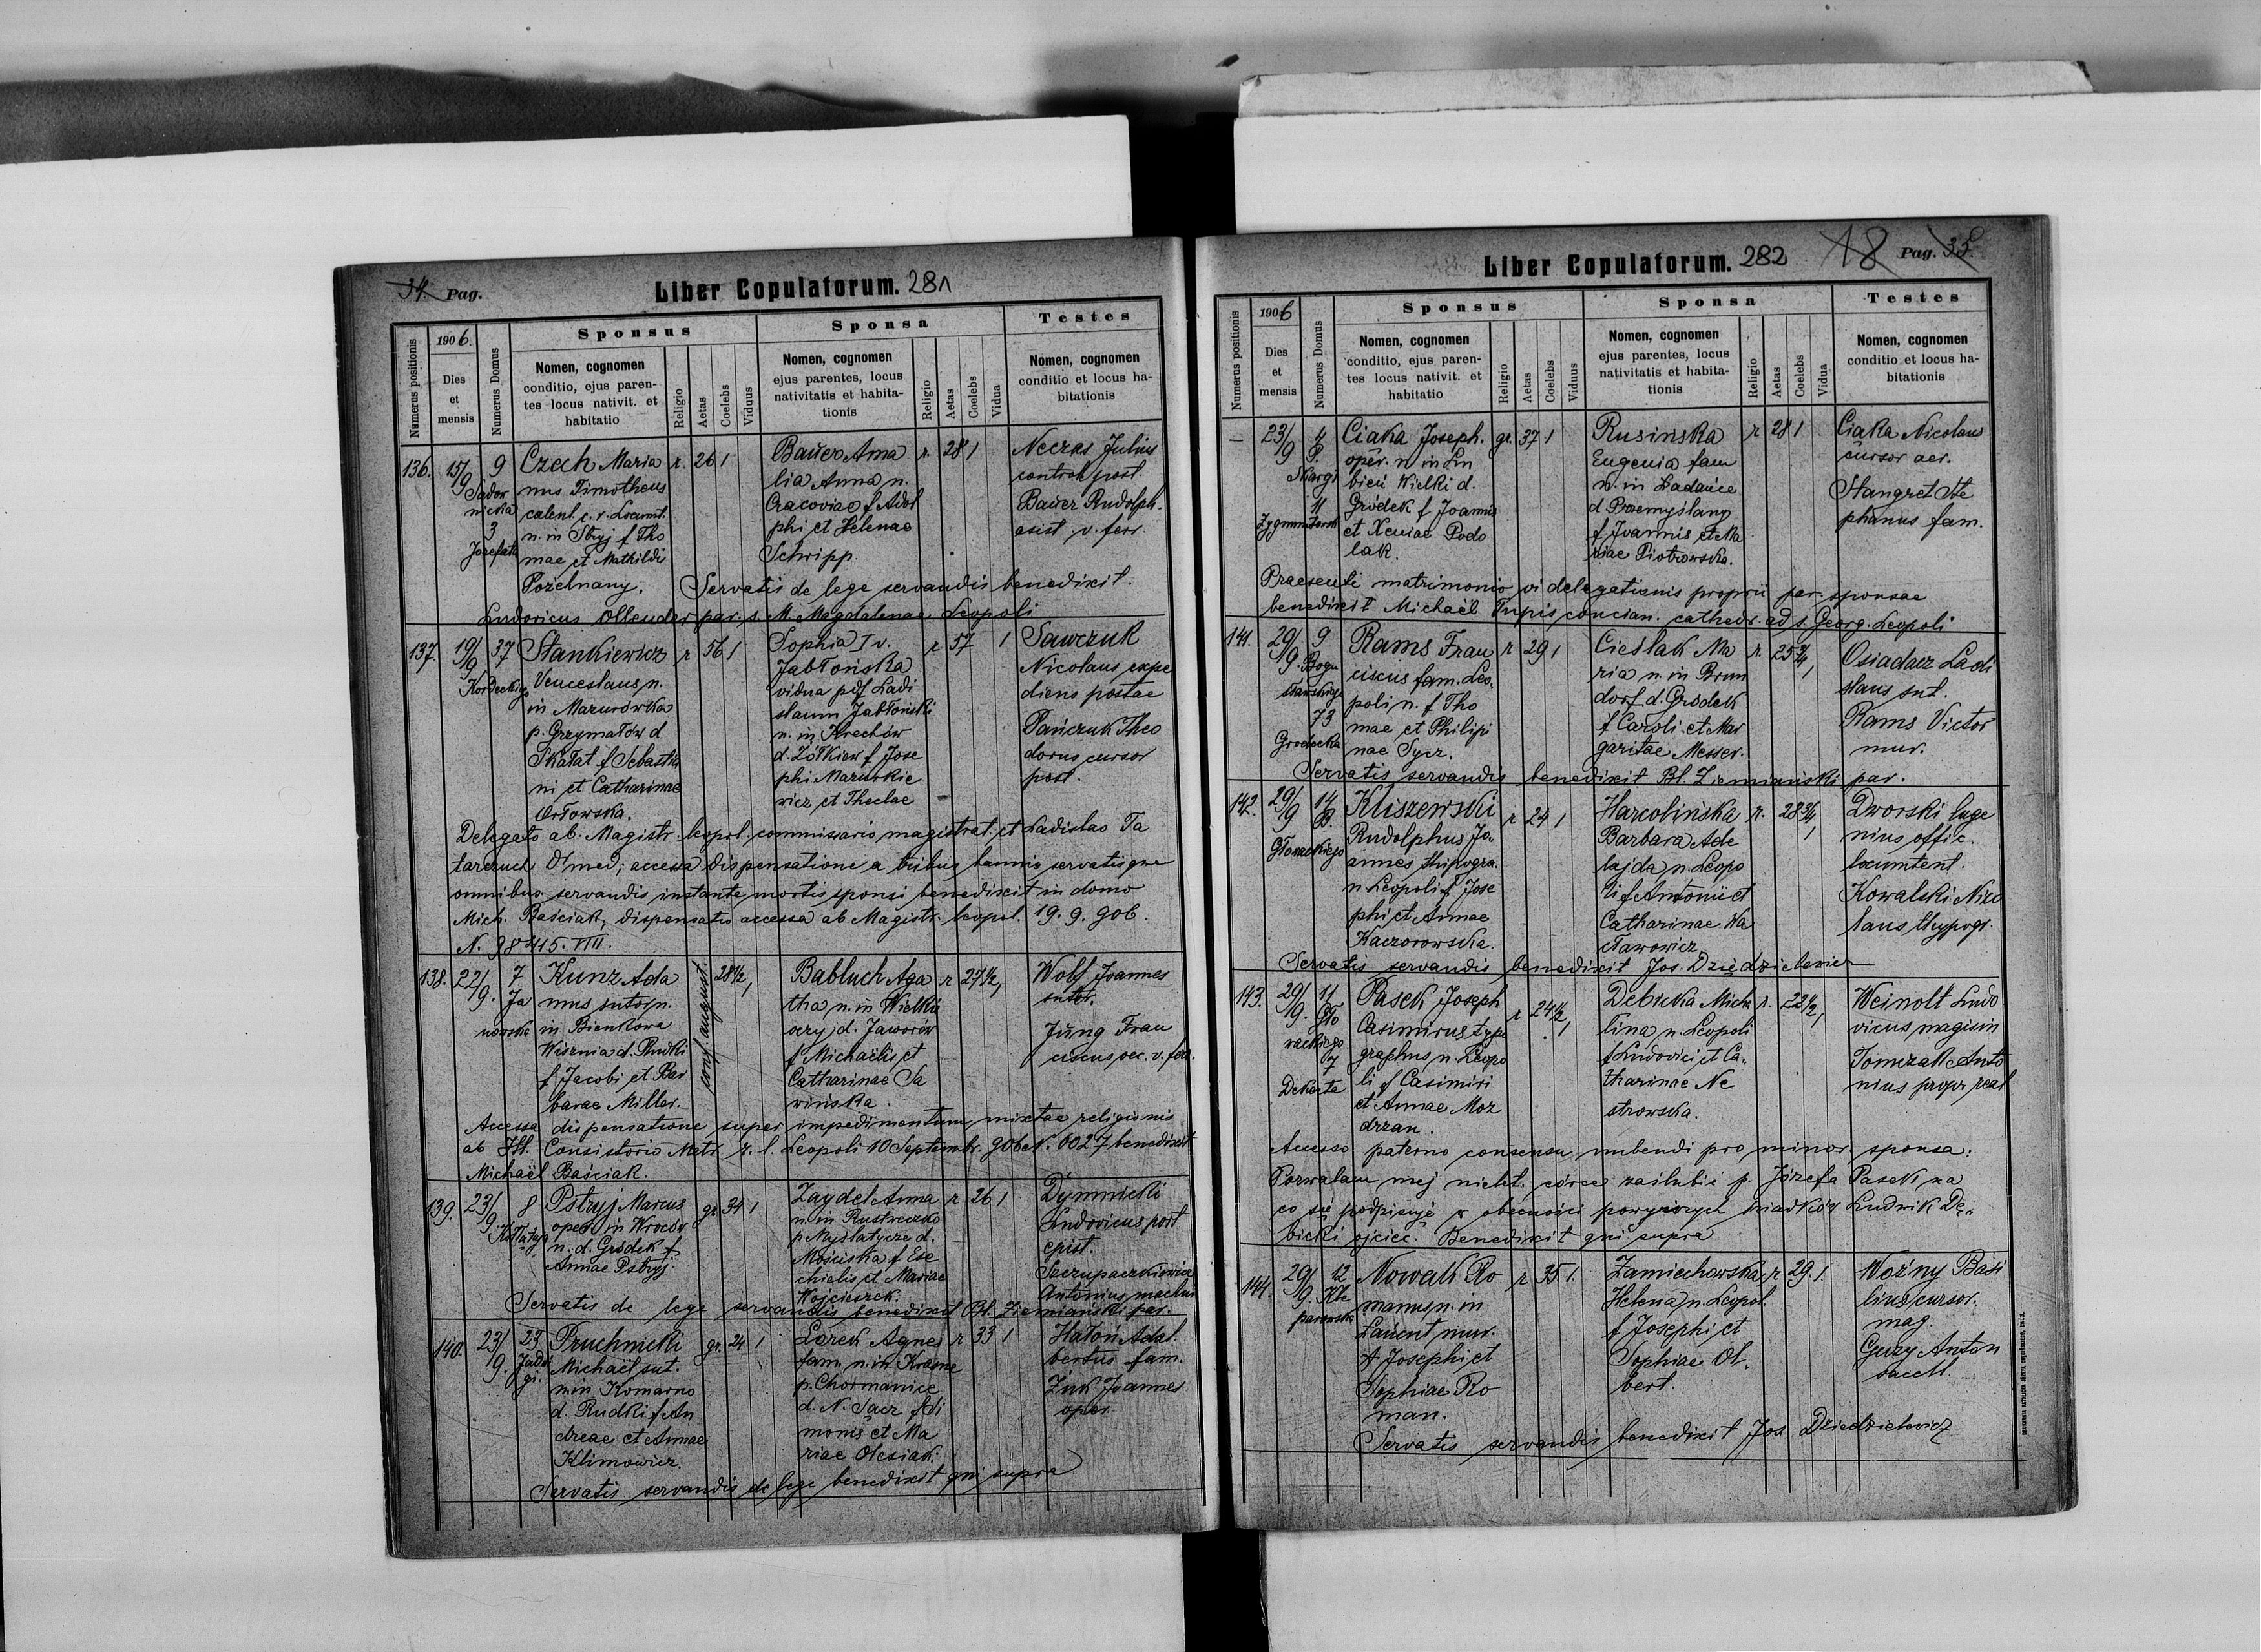 34 Pag.
Liber Copulatorum. 281
Numerus positionis
1906.
Dies
et
mensis
Numerus Domus
Sponsus
Nomen, cognomen
conditio, ejus paren-
tes locus nativit. et
habitatio
Religio
Aetas
Coelebs
Viduus
Sponsa
Nomen, cognomen
ejus parentes, locus
nativitatis et habita-
tionis
Religio
Aetas
Coelebs
Vidua
Testes
Nomen, cognomen
conditio et locus ha-
bitationis
136.
15/9
9
3
Czech Maria
nus Timotheus
n. in Stryj f Tho
mae et Mathildis
r. 26 1
Bauer Ama
lia Anna n.
Cracoviae f Adol
phi et Helenae
Schripp.
r. 28 1
Neczas Julius
post.
Bauer Rudolph.
asist v. ferr.
Servatis de lege servandis benedixit
Ludovicus Ollender par. s. M. Magdalenae Leopoli
137.
19/9
37
Kordeckiego
Stankiewicz
Venceslaus n.
in Mazurówka
p. Grzymałów d
Skałat f Sebastia
ni et Catharinae
Orłowska.
r 56 1
Sophia I v.
Jabłońska
vidua p df Ladi
slaum Jabłoński
n. in Krechów
d. Żółkiew f Jose
phi Mazurkie
wicz et Theclae
r 57 1
Sawczuk
Nicolaus expe
diens postae
Pańczuk Theo
dorus cursor
post.
Delegato ab. Magistr. leopol. commissario magistrat. et Ladislao Ta
tarczuch Dr med; accessa dispensatione a tribus bannis servatisque
omnibus servandis instante mortis sponsi benedixit in domo
Mich. Baściak, dispensatio accessa ab Magistr. leopol. 19. 9. 906.
N. 98415. VIII.
138.
22/9.
7
Ja
nowska
Kunz Ada
mus sutor n.
in Bienkowa
Wisznia d. Rudki
f Jacobi et Bar
barae Miller.
conf. august.
28 1/2 1
Babluch Aga
tha n. in Wielkie
oczy d. Jaworów
f Michaëlis et
Catharinae Sa
wińska.
r 27 1/2 1
Wolf Joannes
sutor.
Jung Fran
ciscus
Accessa dispensatione super impedimentum mixtae religionis
ab Ill. Consistorio Metr. r. l. Leopoli 10 Septembr. 906 N. 6027 benedixit
Michaël Baściak.
139.
23/9
8
Kołłątaja
Pstryj Marcus
oper. in Wroców
n. d. Gródek f.
Annae Pstryj.
gr 34 1
Zaydel Anna
n. in Rustweczko
p Myślatycze d.
Mościska f Eze
chielis et Mariae
Wojciaszek.
r 26 1
Dymnicki
Ludovicus port
epist.
Szczupaczkiewicz
Antonius
Servatis de lege servandis benedixit Bl. Ziemiański par.
140.
23/9.
23
Jadwi
gi.
Pruchnicki
Michaël sut.
n. in Komarno
d. Rudki f An
dreae et Annae
Klimowicz.
gr. 24 1
Lorek Agnes
fam. n. in Krasne
p. Chormanice
d. N. Sącz f Si
monis et Ma
riae Olesiak.
r 33 1
Hatoń Adal.
bertus fam.
Żuk Joannes
oper.
Servatis servandis de lege benedixit qui supra
Liber Copulatorum. 282
18 Pag. 35
Numerus positionis
1906
Dies
et
mensis
Numerus Domus
Sponsus
Nomen, cognomen
conditio, ejus paren-
tes locus nativit. et
habitatio
Religio
Aetas
Coelebs
Viduus
Sponsa
Nomen, cognomen
ejus parentes, locus
nativitatis et habita-
tionis
Religio
Aetas
Coelebs
Vidua
Testes
Nomen, cognomen
conditio et locus ha-
bitationis
–
23/9
4
P.
Skargi
11
Ciaka Joseph.
oper. n in Lu
bień Wielki d.
Gródek f Joannis
et Xeniae Podo
lak.
gr. 37 1
Rusinska
Eugenia fam
n. in Ladańce
d Przemyślany
f Joannis et Ma
riae Piotrowska.
r 28 1
Ciaka Nicolaus
cursor aer.
Stangret Ste
phanus fam.
Praesenti matrimonio vi delegationis proprii par. sponsae
benedixit Michaël Tupis concian. cathedr. ad s. Georg. Leopoli
141.
29/9.
9
73
Grodecka
Rams Fran
ciscus fam. Leo.
poli n. f Tho
mae et Philipi
nae Sycz.
r 29 1
Cieślak Ma
ria n. in Brun
dorf d. Gródek
f Caroli et Mar
garitae Messer.
r. 25 3/4 1
Osiadacz Ladi
slaus sut.
Rams Victor
mur.
Servatis servandis benedixit Bl. Ziemiański par.
142.
29/9
14
B.
Głowackiego
Kliszewski
Rudolphus Jo.
annes thipogra.
n. Leopoli f Jose
phi et Annae
Kaczorowska.
r 24 1
Harcolińska
Barbara Ade
lajda n. Leopo
li f Antonii et
Catharinae Wa
cławowicz
r. 28 3/4 1
Dworski Euge
nius offic.
locumtent.
Kowalski Nico
laus thypogr.
Servatis servandis benedixit Jos. Dziędzielewicz
143.
29/9.
11
Gło
wackiego
7
Dekerta
Pasek Joseph
Casimirus typo
graphus n. Leopo
li f Casimiri
et Annae Moz
drzan.
r 24 1/2 1
Debicka Micha
lina n. Leopoli
f Ludovici et Ca.
tharinae Ne
strowska.
r. 22 1/2 1
Weinolt Ludo
vicus magisin
Tomczak Anto
nius propr real
Accesso paterno consensu nubendi pro minor. sponsa:
Pozwalam mej nielet. córce zaślubić p. Józefa Pasek na
co się podpisuję w obecności powyższych świadków Ludwik Dę„
bicki ojciec. Benedixit qui supra
144.
29/9.
12
Kle
parowska
Nowak Ro
manus n. in
Łańcut mur.
f Josephi et
Sophiae Ro
man.
r 35 1.
Zamiechowska
Helena n. Leopol.
f Josephi et
Sophiae Ol.
bert.
r 29. 1.
Woźny Basi
lius cursor.
mag.
Guzy Anton
sacell.
Servatis servandis benedixit Jos Dziedzielewicz